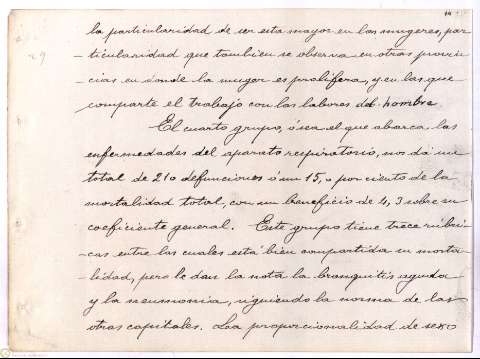 la particularidad de ser esta mayor en las mugeres, par
-ticularidad que tambien se observa en otras provin
-cias en donde la muger es prolifera, y en las que
comparte el trabajo con las labores del hombre.
El cuarto grupo, ó sea el que abarca, las
enfermedades del aparato respiratorio, nos dá un
total de 210 defunciones ó un 15,0 por ciento de la
mortalidad total, con un beneficio de 4,3 sobre su
coeficiente general. Este grupo tiene trece rúbri-
-cas entre las cuales está bien compartida su morta-
-lidad, pero le dan la nota la bronquitis aguda
y la neumonia, siguiendo la norma de las
otras capitales. La proporcionalidad de sexo